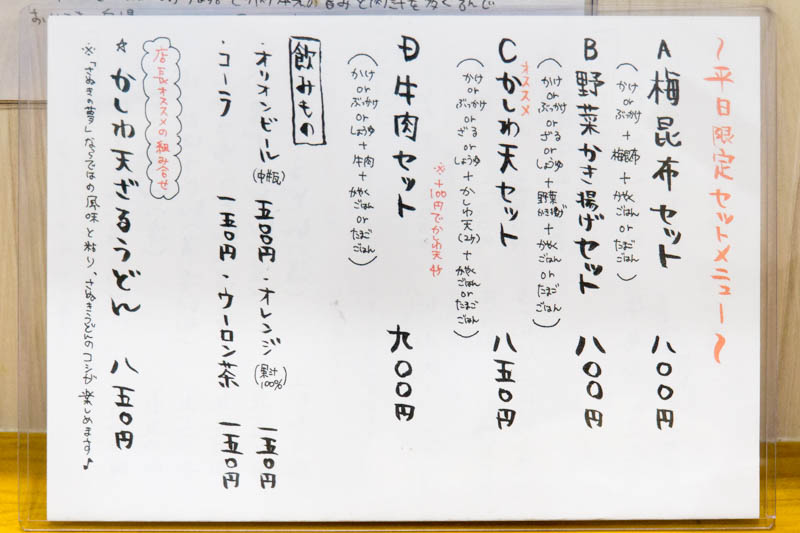 ～平日限定セットメニュー～
A 梅昆布セット 八〇〇円
(かけ or ぶっかけ + 梅昆布 + かやくごはん or たまごごはん)
B 野菜かき揚げセット 八〇〇円
(かけ or ぶっかけ or ざる or しょうゆ + 野菜かき揚げ + かやくごはん or たまごごはん)
オススメ
C かしわ天セット 八五〇円
(かけ or ぶっかけ or ざる or しょうゆ + かしわ天(2ケ) + かやくごはん or たまごごはん)
※+100円でかしわ天4ケ
D 牛肉セット 九〇〇円
(かけ or ぶっかけ or しょうゆ + 牛肉 + かやくごはん or たまごごはん)
飲みもの
・オリオンビール(中瓶) 五〇〇円 ・オレンジ(果汁100%) 一五〇円
・コーラ 一五〇円 ・ウーロン茶 一五〇円
店長オススメの組み合せ
☆かしわ天ざるうどん 八五〇円
※「さぬきの夢」ならではの風味と粘り、さぬきうどんのコシが楽しめます♪